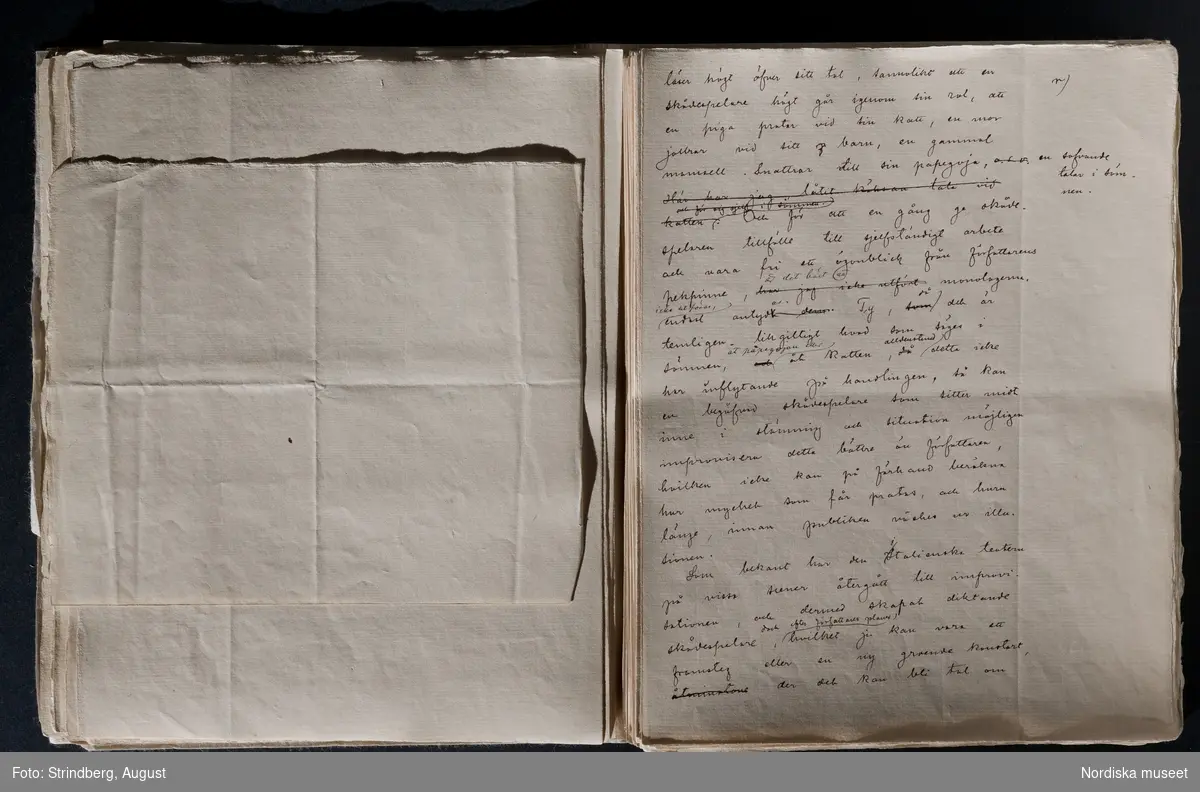 r)
läser högt öfver sitt tal, sannolikt att en
skådespelare högt går igenom sin rol, att
en piga pratar vid sin katt, en mor
jollrar vid sitt barn, en gammal
mamsell snattrar till sin papegoja, en sofvande
talar i söm-
nen.
Här har jag låtit köksan tala vid
katten, Och för att en gång ge skåde-
spelaren tillfälle till sjelfständigt arbete
och vara fri ett ögonblick från författarens
pekpinne, är det bäst att
har jag icke utfört monologerna,
icke utföras,
endast antydas. Ty, då det är
temligen likgiltigt hvad som säges i
sömnen, åt katten, alldenstund detta icke
har inflytande på handlingen, så kan
en begåfvad skådespelare som sitter midt
inne i stämning och situation möjligen
improvisera detta bättre än författaren,
hvilken icke kan på förhand beräkna
hur mycket som får pratas, och huru
länge, innan publiken väckes ur illu-
sionen.
Som bekant har den Italienska teatern
på vissa scener återgått till improvi-
sationen, och dermed skapat diktande
skådespelare, dock efter författarens planer,
hvilket ju kan vara ett
framsteg eller en ny groende konstart,
der det kan bli tal om
Foto: Strindberg, August
Nordiska museet